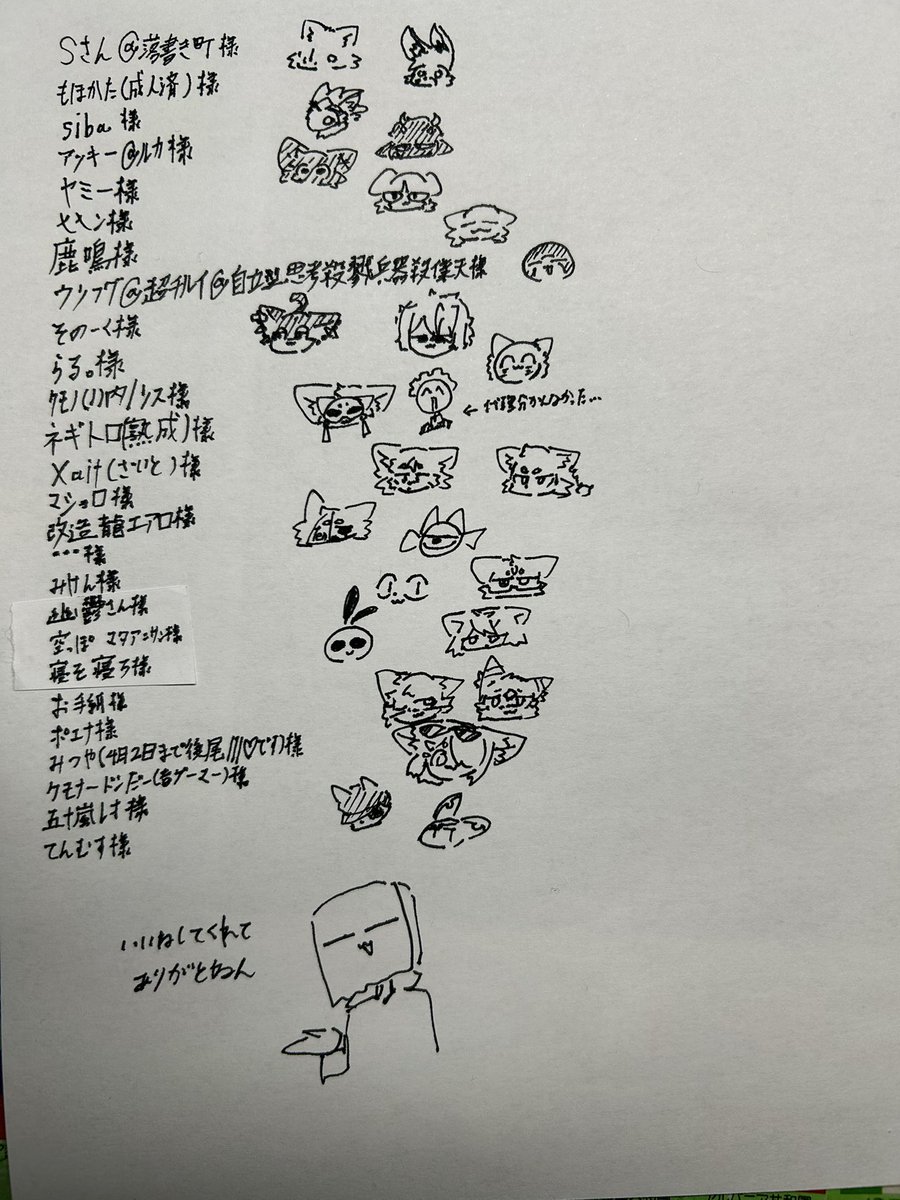 Sさん@落書き町様
もほかた(成人済)様
siba 様
アッキー@ルカ様
ヤミー様
セキン様
鹿鳴様
ウシブタ@超チルイ@自立型思考殺戮兵器殺傑天様
そのーく様
らる。様
ネギトロ(熟成)様
← 代理分からなかった…
Xait(さいと)様
マショロ様
改造龍エアロ様
・・・様
みけん様
幽鬱さん様
空っぽ マタアニサン様
寝そ寝ろ様
お手紙様
ポエナ様
みつや(4月2日まで後尾///♡です)様
ケモナードンだー(音ゲーマー)様
五十嵐レオ様
てんむす様
いいねしてくれて
ありがとねん